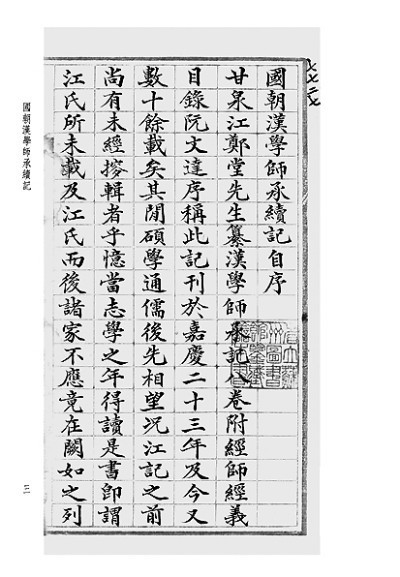 國朝漢學師承續記自序
甘泉江鄭堂先生纂漢學師承記八卷附經師經義
目錄阮文達序稱此記刊於嘉慶二十三年及今又
數十餘載矣其閒碩學通儒後先相望况江記之前
尚有未經摉輯者乎憶當志學之年得讀是書即謂
江氏所未載及江氏而後諸家不應竟在闕如之列
國朝漢學師承續記
三